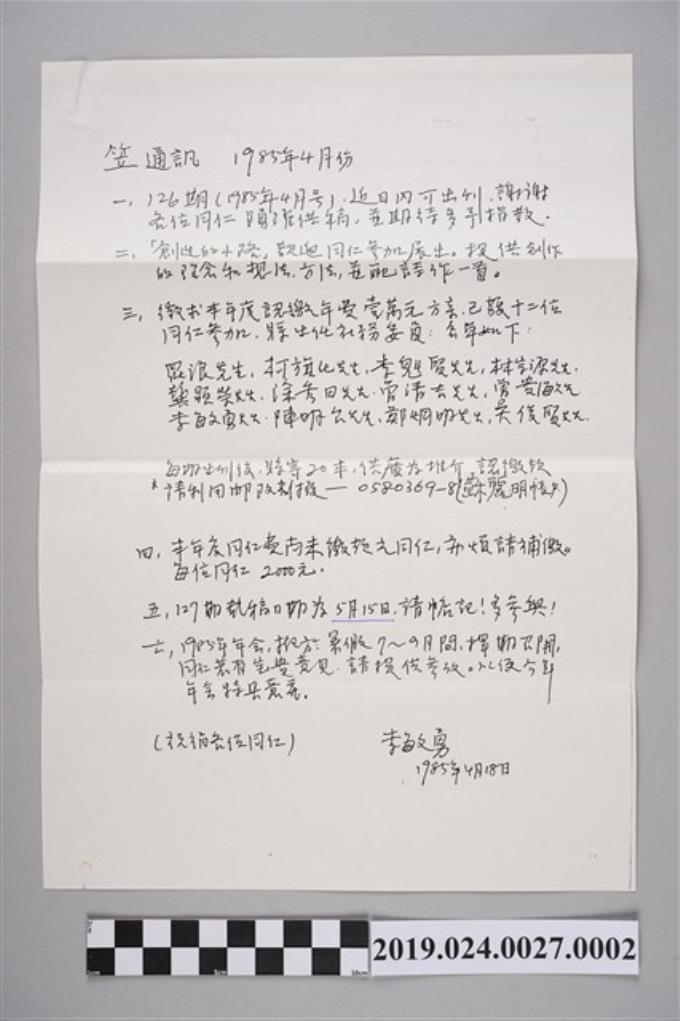 笠通訊 1985年4月份
一、126期(1985年4月号),近日内可出刊.謝謝
各位同仁踴躍供稿,並期待多予指教.
二、「創造的小路」歡迎同仁參加展出。提供創作
的理念和想法、方法,並配詩作一首。
三、徵求本年度認繳年費壹萬元方案,已獲十二位
同仁參加.將出任社務委員:名單如下:
巫永福先生,柯旗化先生,李魁賢先生,林宗源先生
龔顯榮先生.涂秀田先生.曾清去先生,曾貴海先生
李敏勇先生.陳明台先生.鄭烱明先生,吳俊賢先生.
每期出刊後,將寄20本,供廣為推介,認繳款
*請利用郵政劃撥— 0580369-8(蘇麗明帳戶)
四、本年度同仁費尚未繳款之同仁,亦煩請補繳。
每位同仁 2000元.
五、127期截稿日期為5月15日.請惦記!多參與!
六、1985年年会,擬於暑假7~9月間.擇期召開,
同仁若有寶貴意見.請提供參攷。以便今年
年会特具意義.
(祝福各位同仁) 李敏勇
1985年4月18日
2019.024.0027.0002